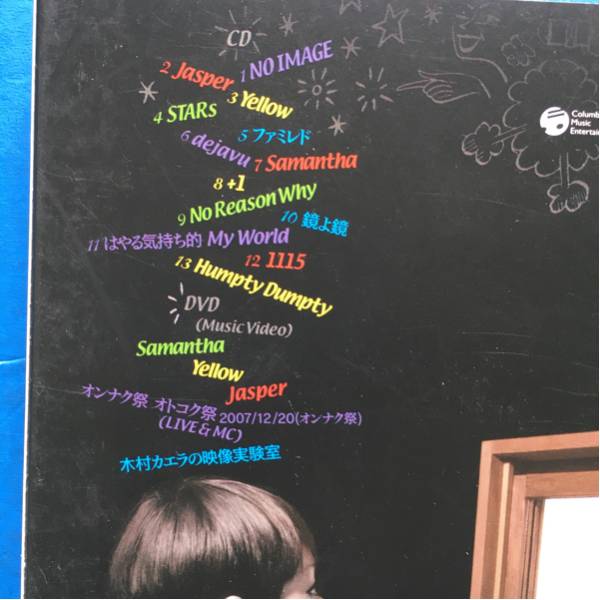 CD
1 NO IMAGE
2 Jasper
3 Yellow
4 STARs
5 ファミレド
6 dejavu
7 Samantha
8 +1
9 No Reason Why
10 鏡よ鏡
11 はやる気持ち的 My World
12 1115
13 Humpty Dumpty
DVD
(Music Video)
Samantha
Yellow
Jasper
オンナク祭 オトコク祭 2007/12/20(オンナク祭)
(LIVE & MC)
木村カエラの映像実験室
Columb
Music
Entertai